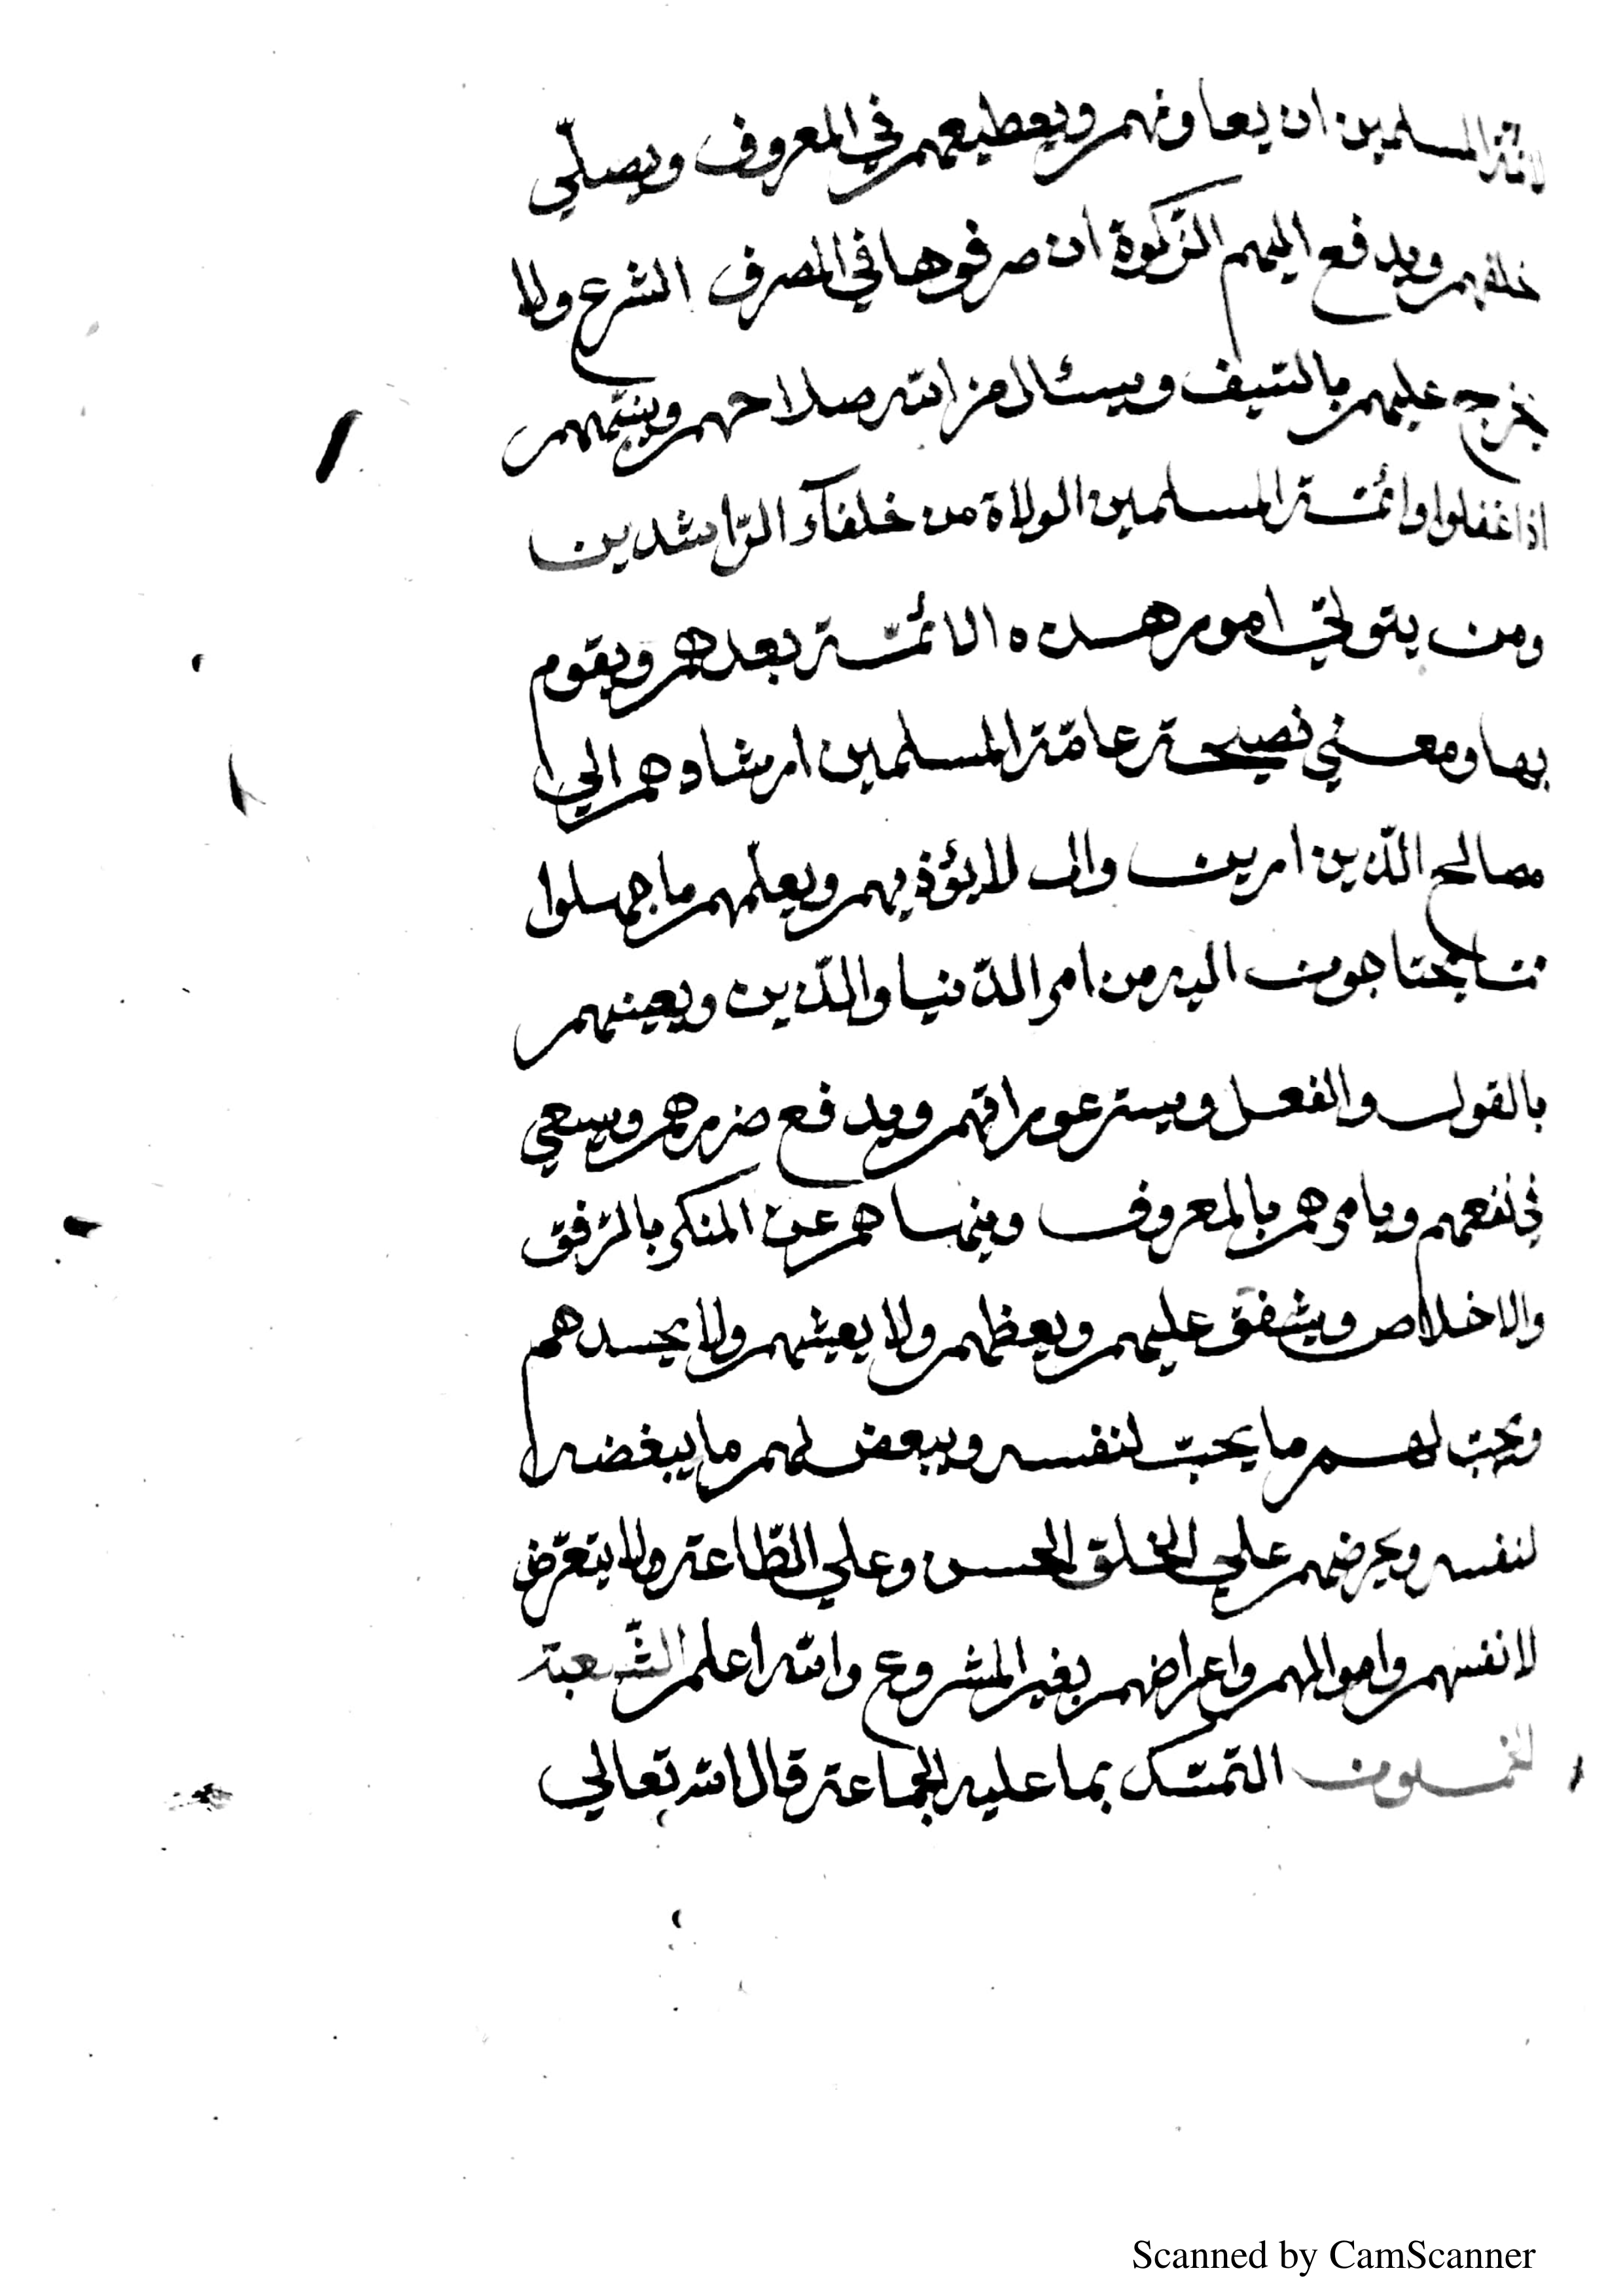 لائمة المسلمين ان يعاونهم ويعطيعهم في المعروف ويصلّي
خلفهم ويدفع اليهم الزّكوة ان صرفوها في المصرف الشرع ولا
يخرج عليهم بالسّيف ويسئال من الله صلاحهم وينبّههم
اذا غفلوا وائمّة المسلمين الولاة من خلفاؤ الرّاشدين
ومن يتولّي امور هذه الائمّة بعدهم ويقوم
بها ومعني نصيحة عامّة المسلمين ارشادهم الي
مصالح الدّارين وان لا يؤذيهم ويعلّمهم ما جهلوا
ممّا يحتاجون اليه من امر الدّنيا والدّين ويعينهم
بالقول والفعل ويستر عوراتهم ويدفع ضررهم ويسعي
في نفعهم ويامرهم بالمعروف وينهاهم عن المنكر بالرّفق
والاخلاص ويشفق عليهم ويعظهم ولا يعيثهم ولا يحسدهم
ويحبّ لهم ما يحبّ لنفسه ويبعض لهم ما يبغضه
لنفسه ويحرضهم علي الخلق الحسن وعلي الطّاعة ولا يتعرّض
لانفسهم واموالهم واعراضهم بغير المشروع والله اعلم الشّعبة
الخمسون التمسّك بما عليه الجماعة قال الله تعالي
Scanned by CamScanner